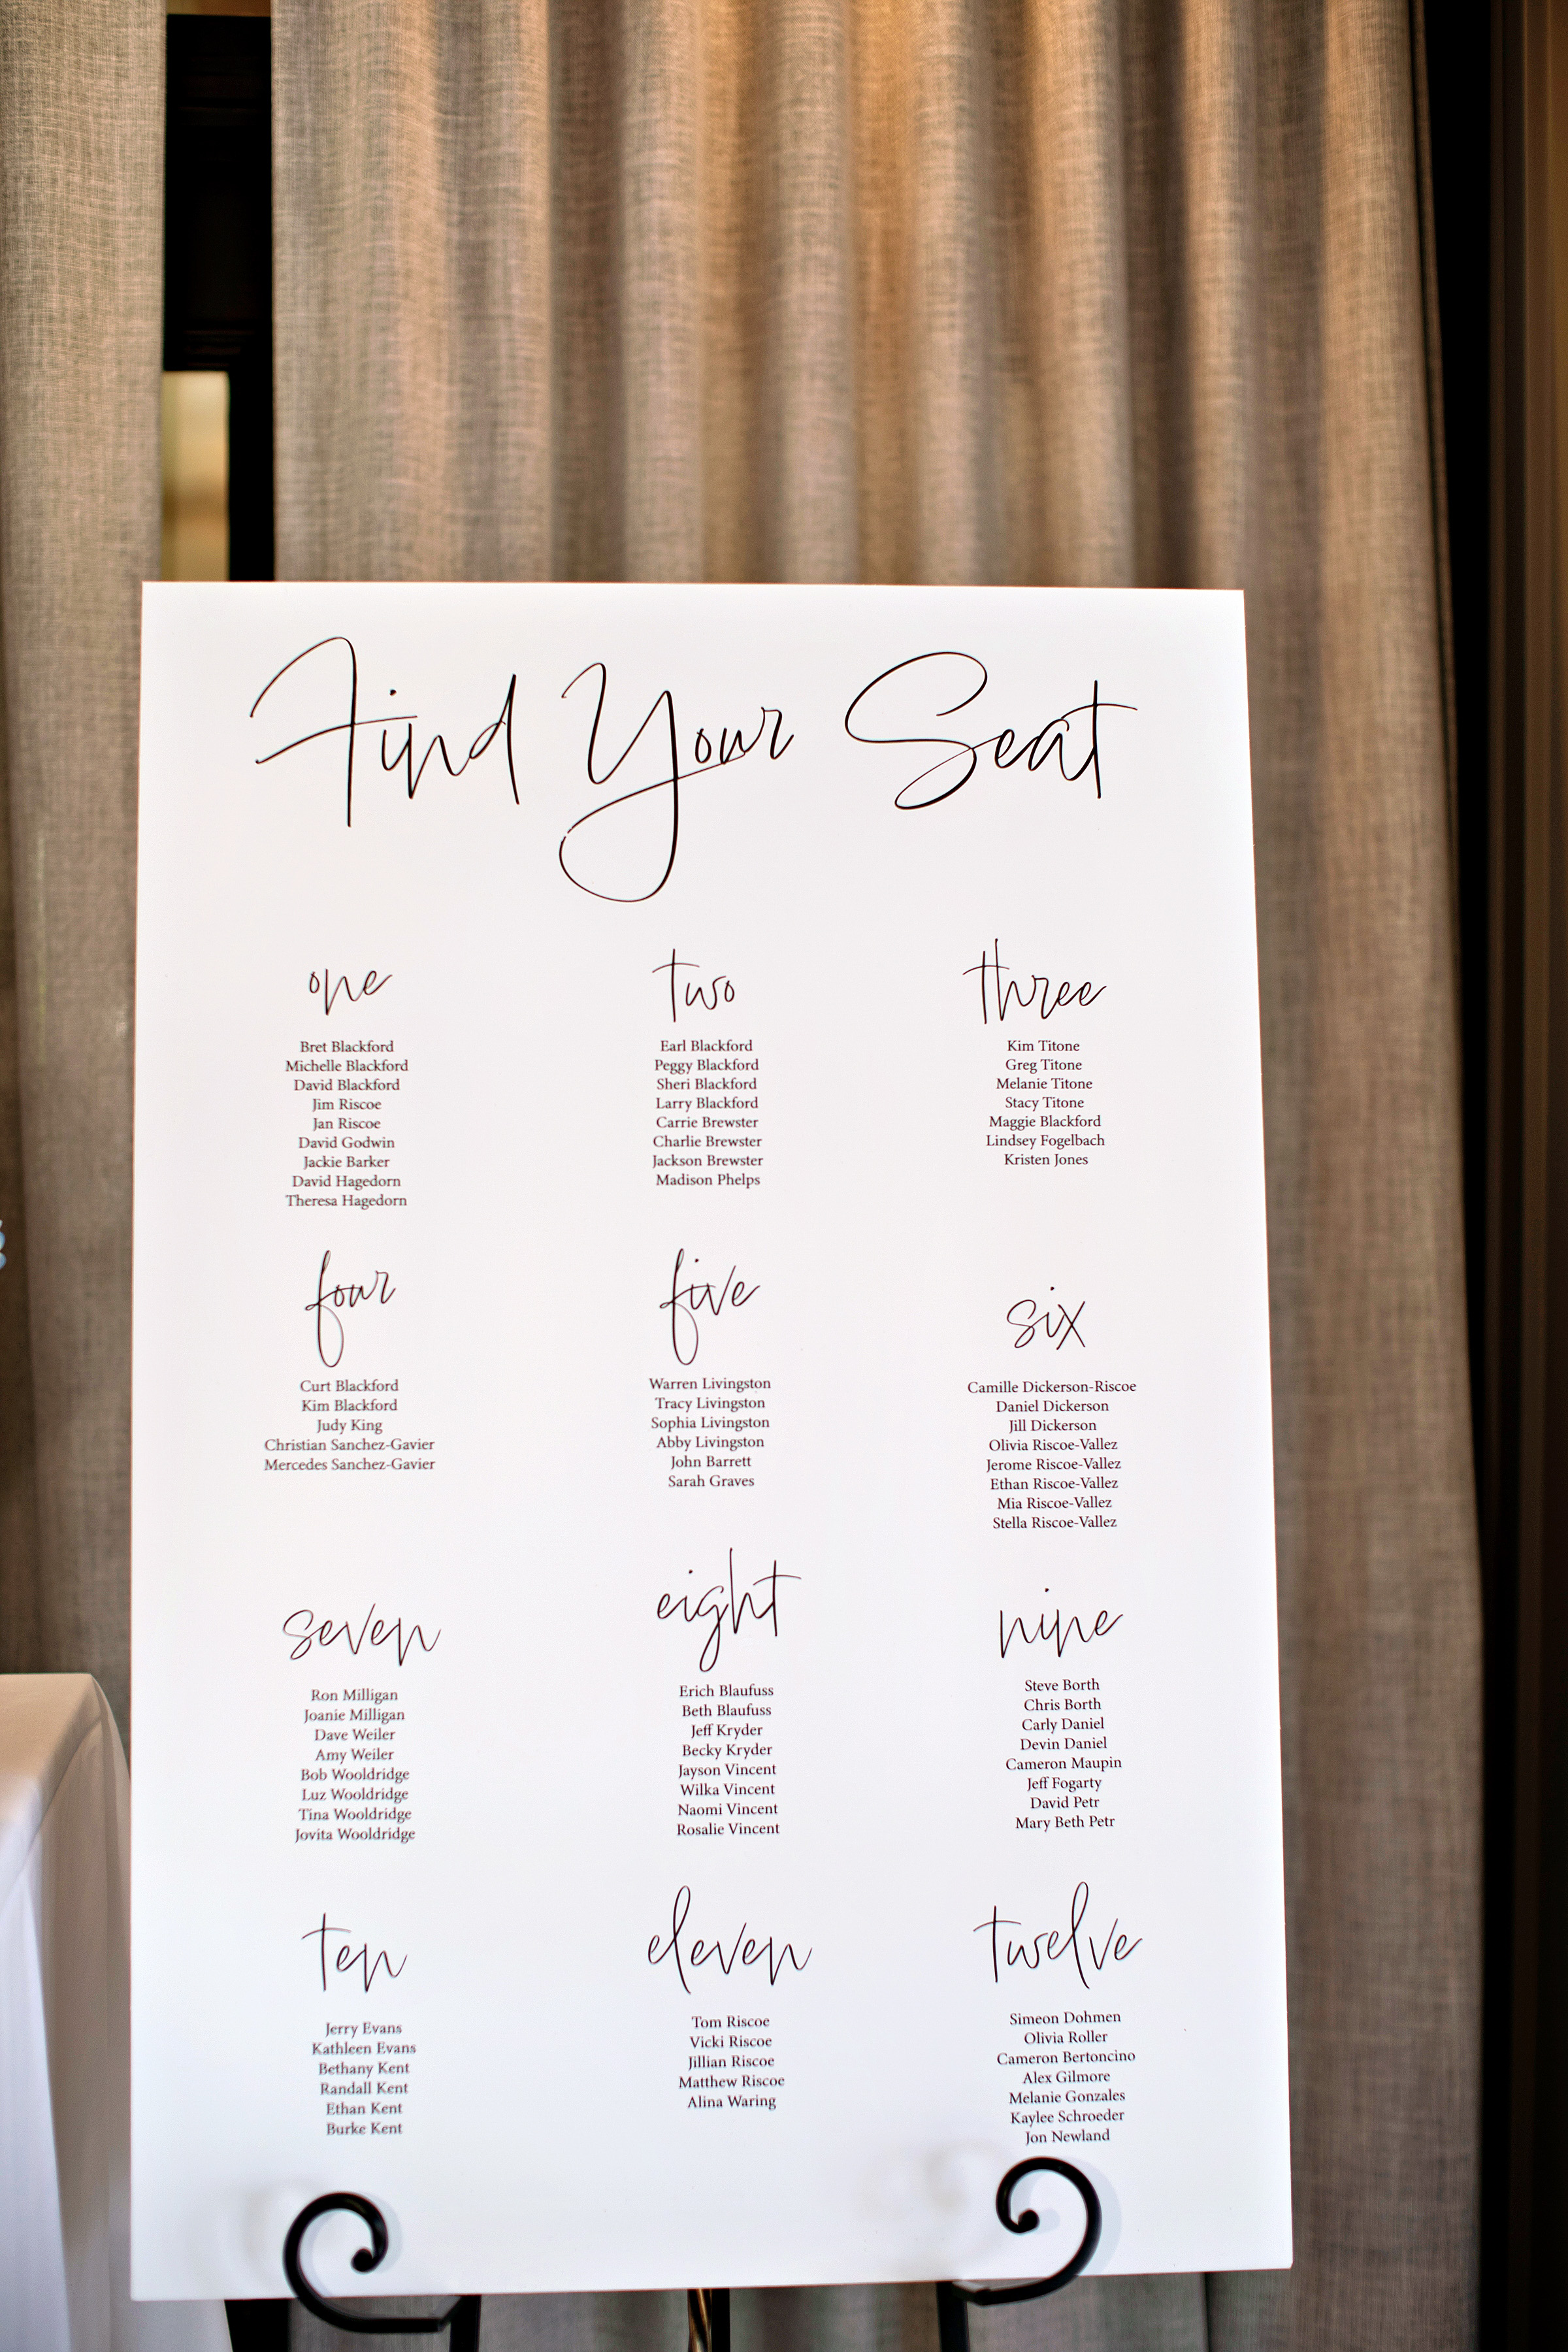 Find Your Seat
one
Bret Blackford
Michelle Blackford
David Blackford
Jim Riscoe
Jan Riscoe
David Godwin
Jackie Barker
David Hagedorn
Theresa Hagedorn
two
Earl Blackford
Peggy Blackford
Sheri Blackford
Larry Blackford
Carrie Brewster
Charlie Brewster
Jackson Brewster
Madison Phelps
three
Kim Titone
Greg Titone
Melanie Titone
Stacy Titone
Maggie Blackford
Lindsey Fogelbach
Kristen Jones
four
Curt Blackford
Kim Blackford
Judy King
Christian Sanchez-Gavier
Mercedes Sanchez-Gavier
five
Warren Livingston
Tracy Livingston
Sophia Livingston
Abby Livingston
John Barrett
Sarah Graves
six
Camille Dickerson-Riscoe
Daniel Dickerson
Jill Dickerson
Olivia Riscoe-Vallez
Jerome Riscoe-Vallez
Ethan Riscoe-Vallez
Mia Riscoe-Vallez
Stella Riscoe-Vallez
seven
Ron Milligan
Joanie Milligan
Dave Weiler
Amy Weiler
Bob Wooldridge
Luz Wooldridge
Tina Wooldridge
Jovita Wooldridge
eight
Erich Blaufuss
Beth Blaufuss
Jeff Kryder
Becky Kryder
Jayson Vincent
Wilka Vincent
Naomi Vincent
Rosalie Vincent
nine
Steve Borth
Chris Borth
Carly Daniel
Devin Daniel
Cameron Maupin
Jeff Fogarty
David Petr
Mary Beth Petr
ten
Jerry Evans
Kathleen Evans
Bethany Kent
Randall Kent
Ethan Kent
Burke Kent
eleven
Tom Riscoe
Vicki Riscoe
Jillian Riscoe
Matthew Riscoe
Alina Waring
twelve
Simeon Dohmen
Olivia Roller
Cameron Bertoncino
Alex Gilmore
Melanie Gonzales
Kaylee Schroeder
Jon Newland